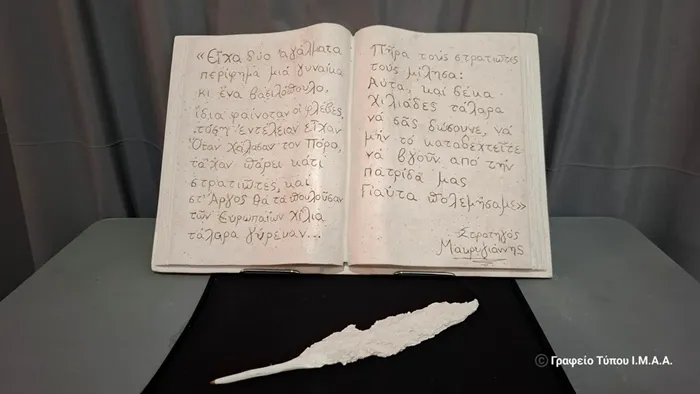 «Εἶχα δυο ἀγάλματα
περίφημα μιά γυναίκα
κι ἕνα βασιλόπουλο,
ἴδια φαίνοταν οἱ φλέβες,
τόση ἐντέλειαν εἶχαν
Ὅταν χάλασαν τον Πόρο,
τἄχαν πάρει κάτι
στρατιῶτες, και
στ' Ἄργος θά τα πουλοῦσαν
τῶν Εὐρωπαίων χίλια
τάλαρα γύρευαν...
Πῆρα τούς στρατιῶτες
τούς μίλησα:
Αὐτα, καί δέκα
χιλιάδες τάλαρα
νά σᾶς δώσουνε, νά
μήν τό καταδεχτεῖτε
νά βγοῦν ἀπό τήν
πατρίδα μας
Γιαὐτα πολεμήσαμε»
Στρατηγός
Μακρυγιάννης
© Γραφείο Τύπου Ι.Μ.Α.Α.